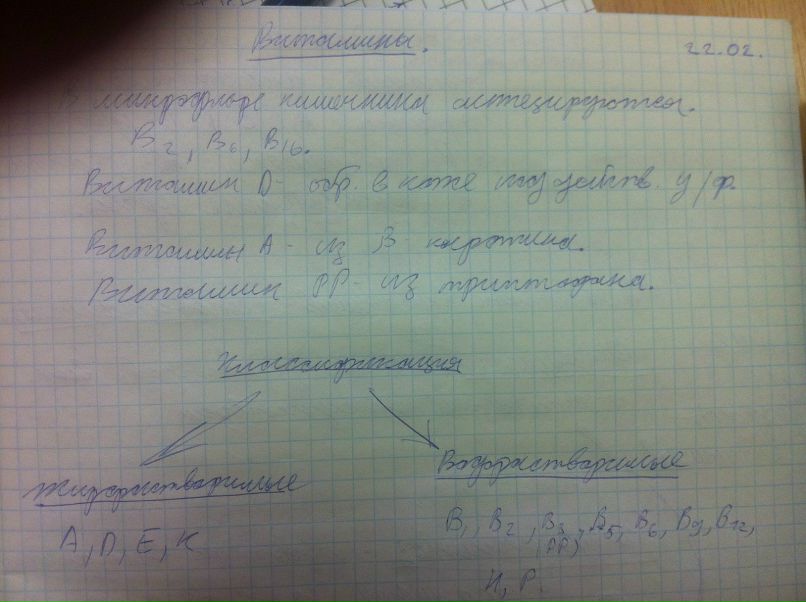 Витамины.
22.02.
В микрофлоре кишечника
B2, B6, B16.
Витамин D - обр. в коже под действ. у/ф.
Витамин A - из B - каротина.
Витамин PP - из триптофана.
Классификация
Жирорастваримые
Водорастваримые
A, D, E, K
B1, B2, B3, B5, B6, B9, B12,
(PP)
H, P.